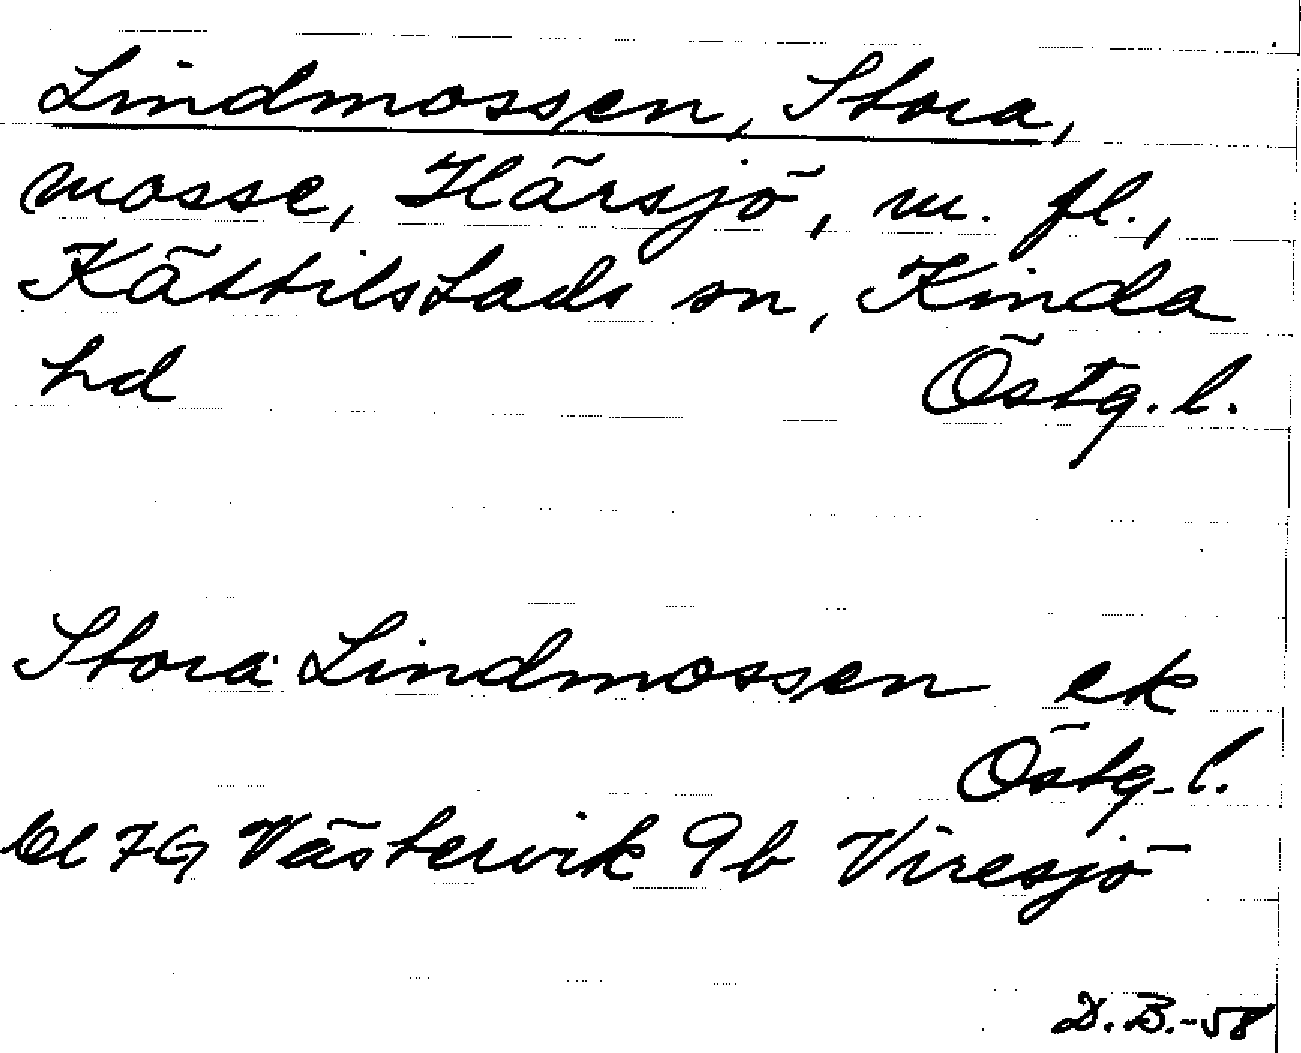 Lindmossen, Stora,
mosse, Härsjö, m. fl.,
Kättilstads sn, Kinda
hd Östg. l.
Stora Lindmossen ek
Östg. l.
bl 7G Västervik 9b Viresjö
D.B.-58